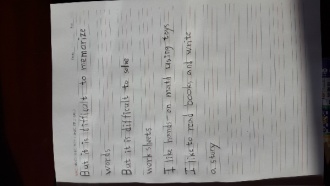 But it is difficult to memorize
words
But it is difficult to solve
work sheets
I like hands-on math using toys
I like to read book and write
a story